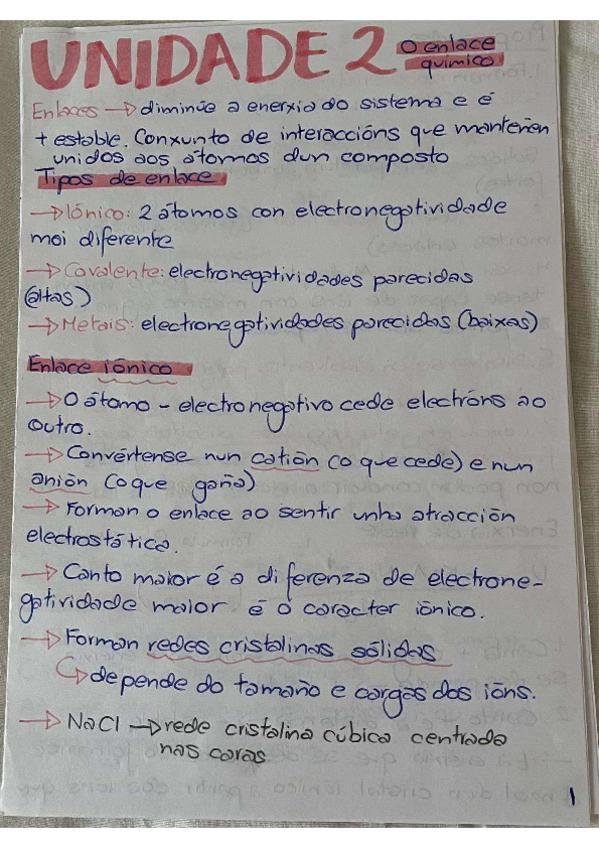 UNIDADE 2 O enlace
químico
Enlaces → diminúe a enerxía do sistema e é
+ estable. Conxunto de interaccións que manteñen
unidos aos átomos dun composto
Tipos de enlace
→ Iónico: 2 átomos con electronegatividade
moi diferente
→ Covalente: electronegatividades parecidas
(altas)
→ Metais: electronegatividades parecidas (baixas)
Enlace iónico
→ O átomo - electronegativo cede electróns ao
outro.
→ Convértense nun catión (o que cede) e nun
anión (o que gaña)
→ Forman o enlace ao sentir unha atracción
electrostática.
→ Canto maior é a diferenza de electrone-
gatividade maior é o caracter iónico.
→ Forman redes cristalinas sólidas
↳ depende do tamaño e cargas dos ións.
→ NaCl → rede cristalina cúbica centrada
nas caras
1